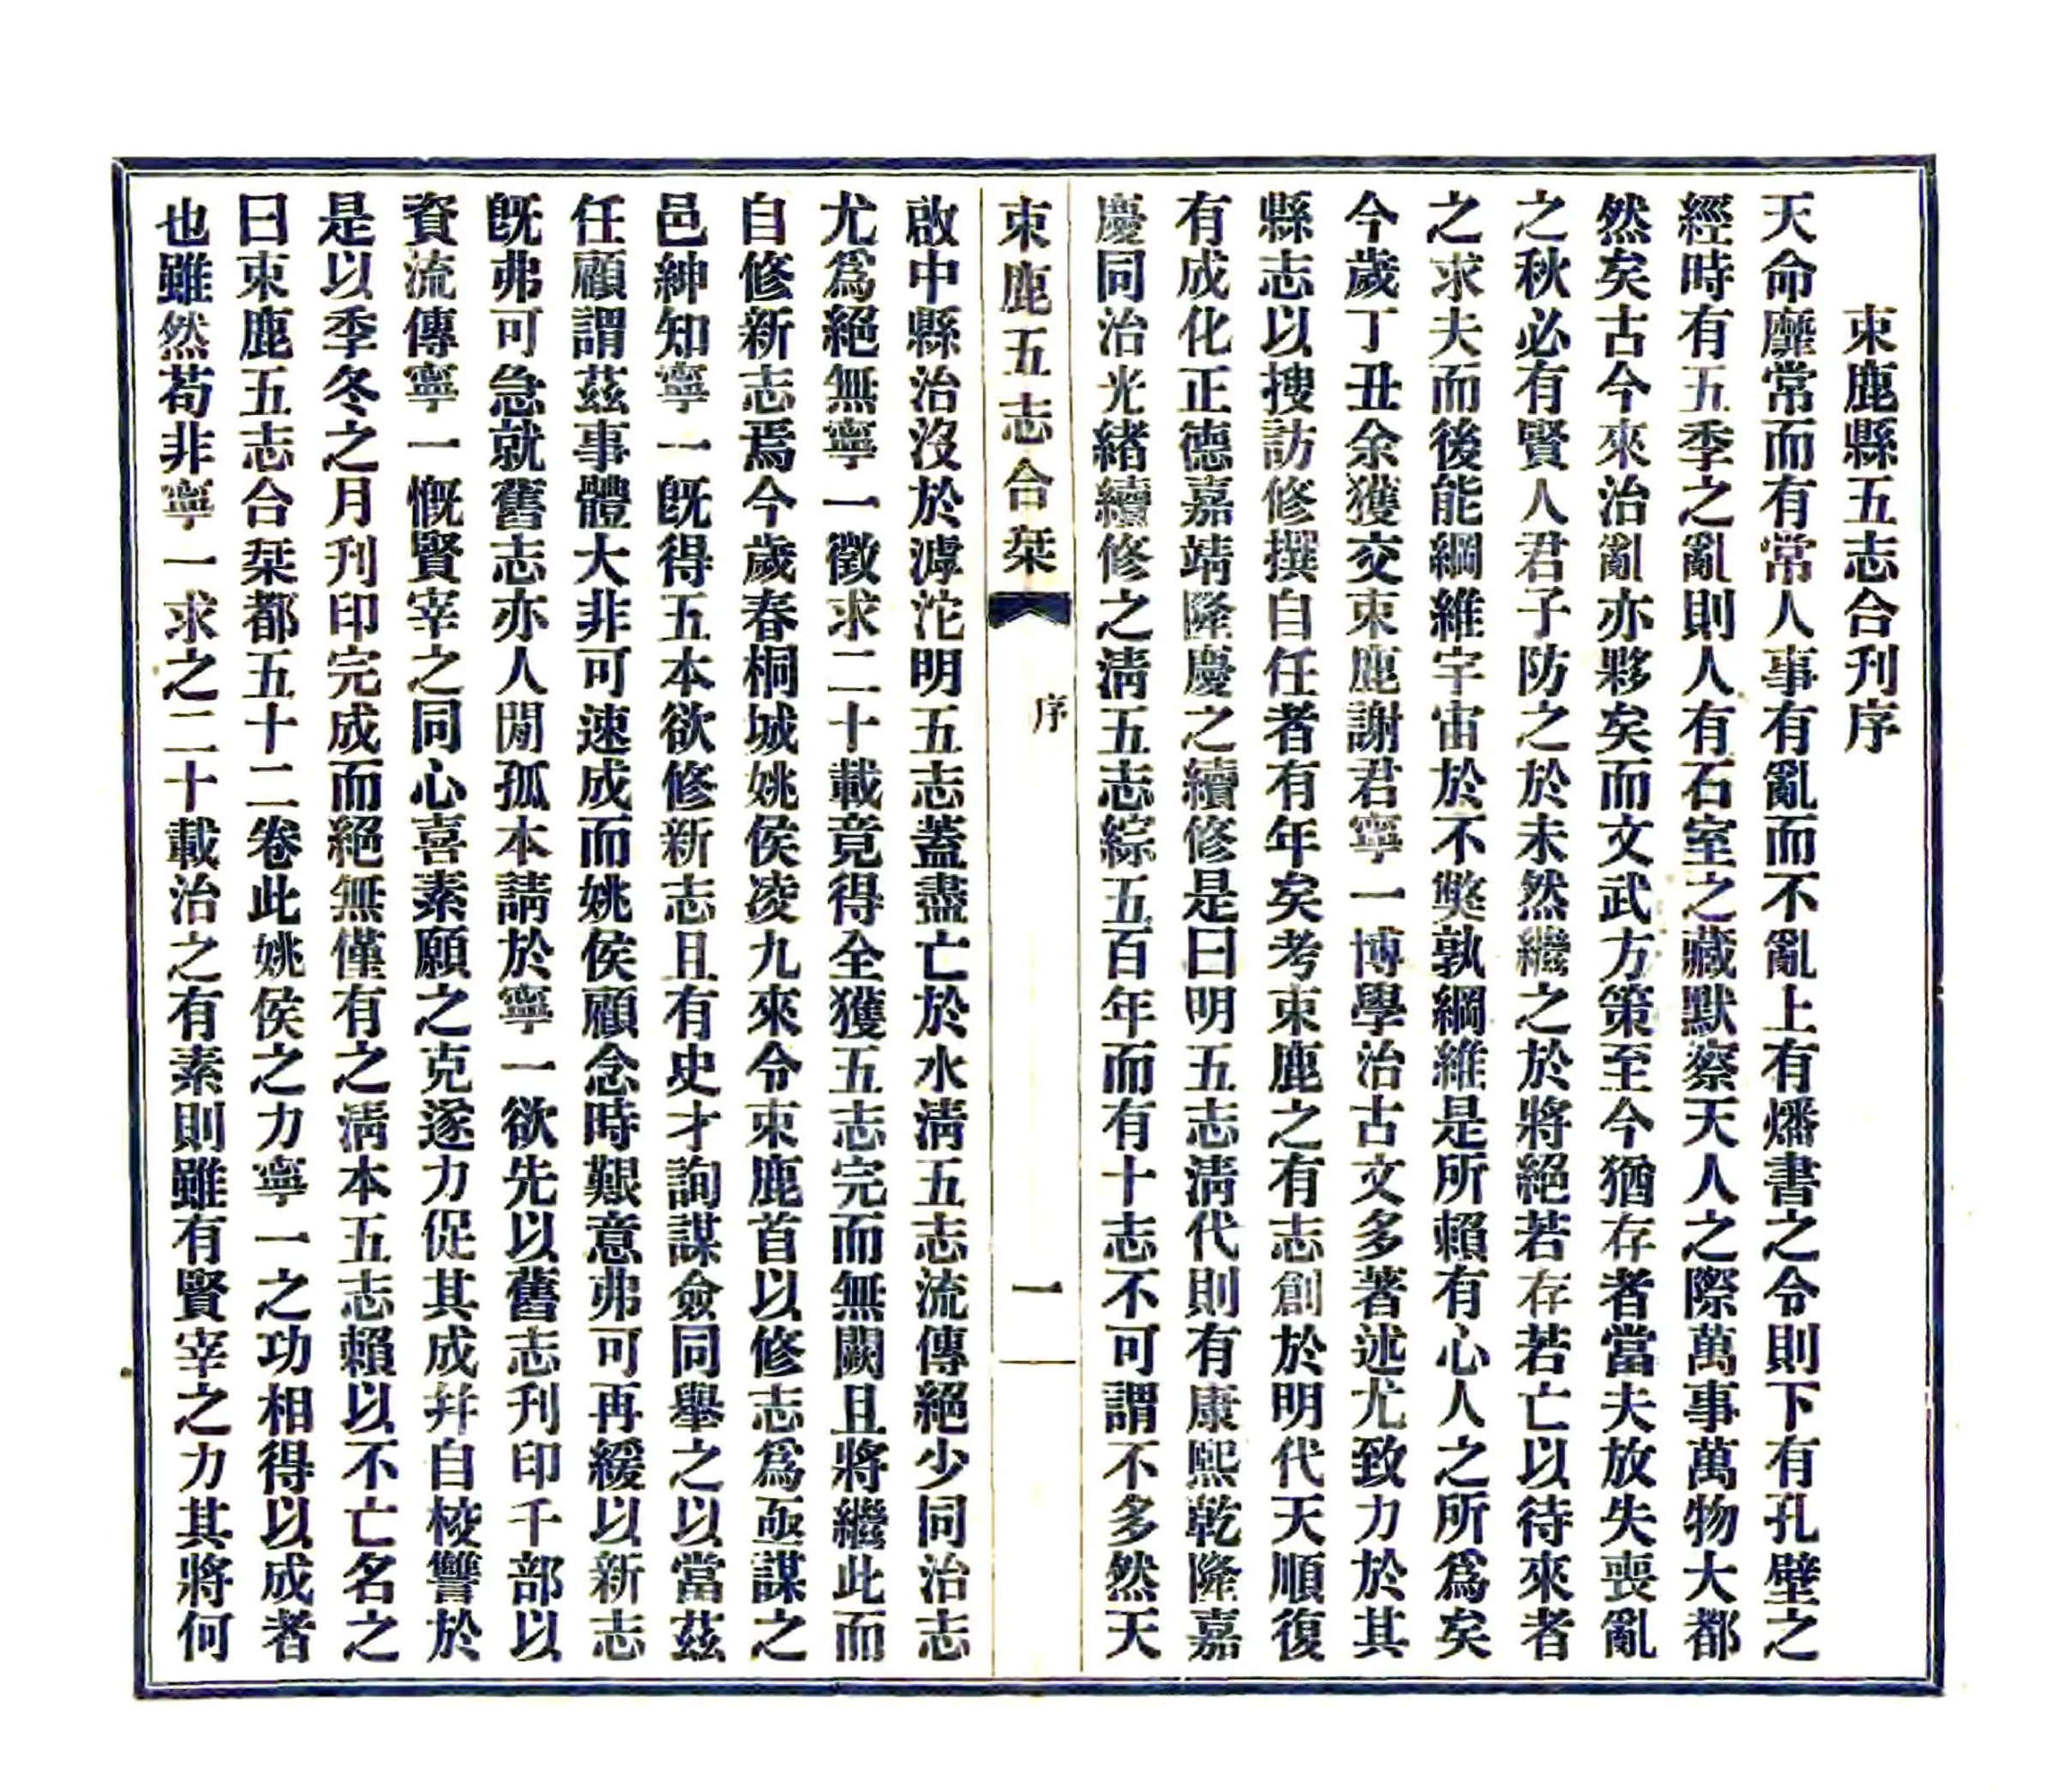 束鹿縣五志合刊序
天命靡常而有常人事有亂而不亂上有燔書之令則下有孔壁之
經時有五季之亂則人有石室之藏默察天人之際萬事萬物大都
然矣古今來治亂亦夥矣而文武方策至今猶存者當夫放失喪亂
之秋必有賢人君子防之於未然繼之於將絕若存若亡以待來者
之求夫而後能綱維宇宙於不獘孰綱維是所賴有心人之所爲矣
今歲丁丑余獲交束鹿謝君寧一博學治古文多著述尤致力於其
縣志以搜訪修撰自任者有年矣考束鹿之有志創於明代天順復
有成化正德嘉靖隆慶之續修是曰明五志淸代則有康熙乾隆嘉
慶同治光緒續修之淸五志綜五百年而有十志不可謂不多然天
束鹿五志合栞
序
一
啟中縣治沒於滹沱明五志蓋盡亡於水淸五志流傳絕少同治志
尤爲絕無寧一徵求二十載竟得全獲五志完而無闕且將繼此而
自修新志焉今歲春桐城姚侯凌九來令束鹿首以修志爲亟謀之
邑紳知寧一旣得五本欲修新志且有史才詢謀僉同舉之以當茲
任顧謂茲事體大非可速成而姚侯顧念時艱意弗可再緩以新志
旣弗可急就舊志亦人間孤本請於寧一欲先以舊志刊印千部以
資流傳寧一慨賢宰之同心喜素願之克遂力促其成幷自校讐於
是以季冬之月刊印完成而絕無僅有之淸本五志賴以不亡名之
曰束鹿五志合栞都五十二卷此姚侯之力寧一之功相得以成者
也雖然苟非寧一求之二十載治之有素則雖有賢宰之力其將何